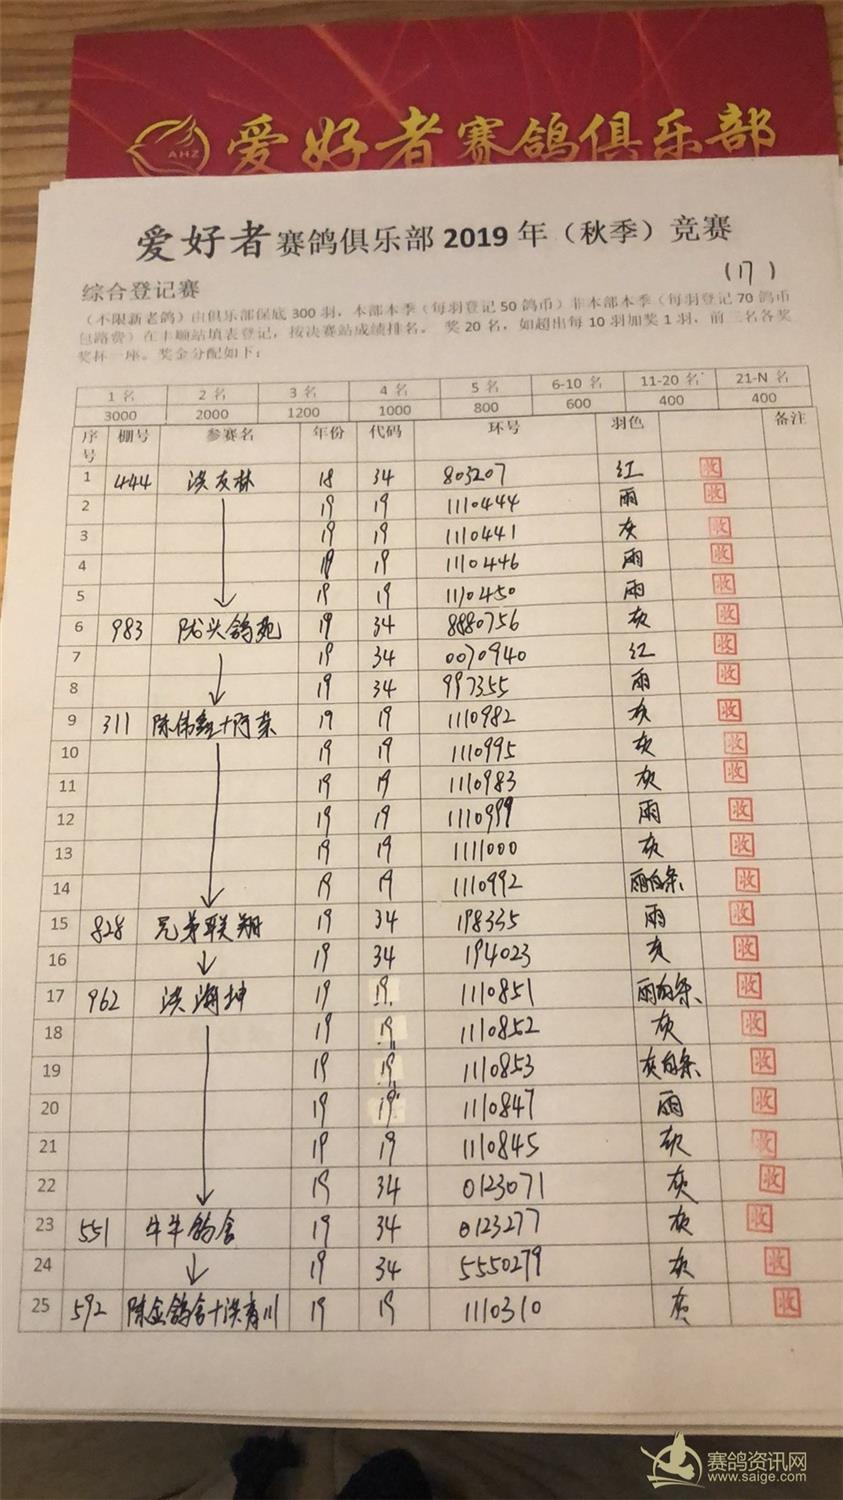 AHZ 爱好者赛鸽俱乐部
爱好者赛鸽俱乐部 2019 年（秋季）竞赛
(17)
综合登记赛
（不限新老鸽）由俱乐部保底 300 羽，本部本季（每羽登记 50 鸽币）非本部本季（每羽登记 70 鸽币
包路费）在丰顺站填表登记，按决赛站成绩排名。 奖 20 名，如超出每 10 羽加奖 1 羽，前三名各奖
奖杯一座。奖金分配如下：
1 名 2 名 3 名 4 名 5 名 6-10 名 11-20 名 21-N 名
3000 2000 1200 1000 800 600 400 400
序号 棚号 参赛名 年份 代码 环号 羽色 备注
1 444 洪友林 18 34 803207 红 收
2 19 19 1110444 雨 收
3 19 19 1110441 灰 收
4 19 19 1110446 雨 收
5 19 19 1110450 雨 收
6 983 陇头鸽苑 19 34 8880756 灰 收
7 19 34 0070940 红 收
8 19 34 997355 雨 收
9 311 陈伟鑫+阿荣 19 19 1110982 灰 收
10 19 19 1110995 灰 收
11 19 19 1110983 灰 收
12 19 19 1110999 雨 收
13 19 19 1111000 灰 收
14 19 19 1110992 雨白条 收
15 828 兄弟联翔 19 34 198335 雨 收
16 19 34 194023 灰 收
17 962 洪海坤 19 19 1110851 雨白条 收
18 19 19 1110852 灰 收
19 19 19 1110853 灰白条 收
20 19 19 1110847 雨 收
21 19 19 1110845 灰 收
22 19 34 0123071 灰 收
23 551 牛牛鸽舍 19 34 0123277 灰 收
24 19 34 5550279 灰 收
25 592 陈金鸽舍+洪育川 19 19 1110310 灰 收
赛鸽资讯网
www.saige.com